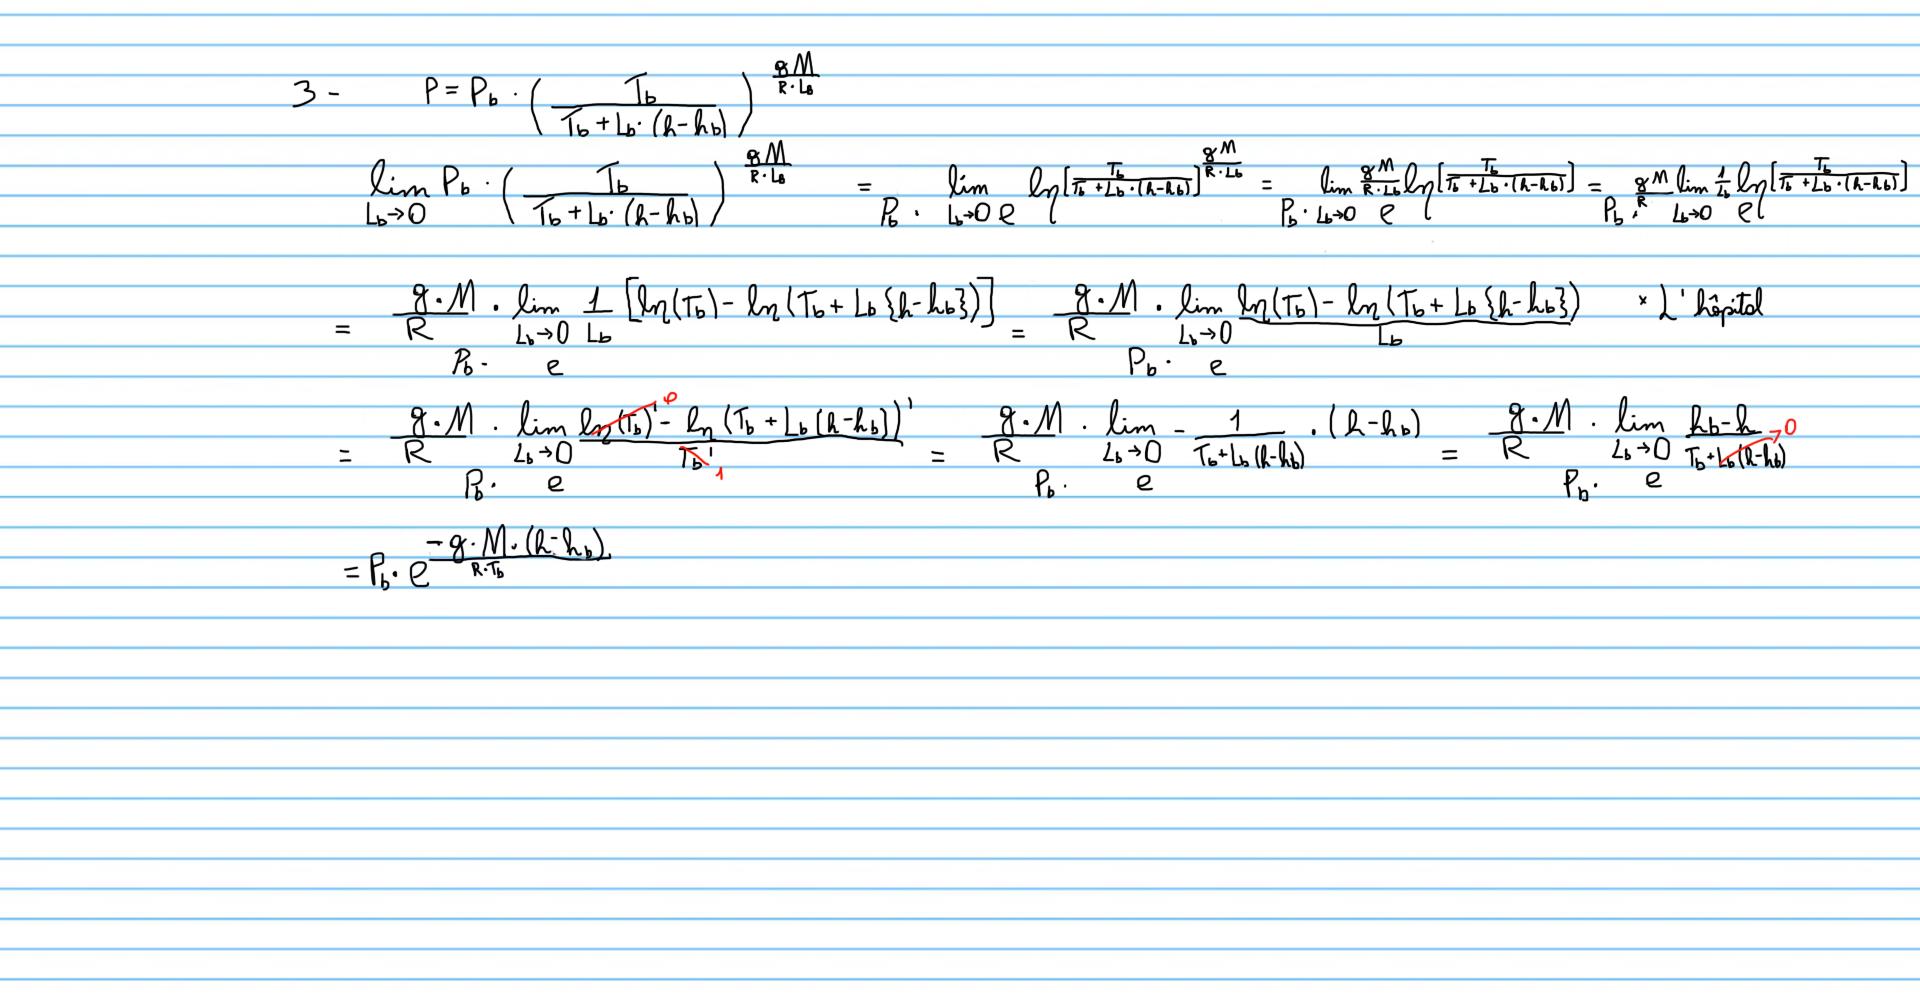 3 - P = P_b · ( T_b / (T_b + L_b · (h-h_b)) )^(gM / (R·L_b))
lim_{L_b→0} P_b · ( T_b / (T_b + L_b · (h-h_b)) )^(gM / (R·L_b)) = P_b · lim_{L_b→0} e^(ln[T_b / (T_b + L_b·(h-h_b))]^(gM / (R·L_b))) = P_b · lim_{L_b→0} e^(gM / (R·L_b) ln[T_b / (T_b + L_b·(h-h_b))]) = P_b · e^(gM / R lim_{L_b→0} 1/L_b ln[T_b / (T_b + L_b·(h-h_b))])
= P_b · e^(g·M / R · lim_{L_b→0} 1/L_b [ln(T_b) - ln(T_b + L_b{h-h_b})]) = P_b · e^(g·M / R · lim_{L_b→0} (ln(T_b) - ln(T_b + L_b{h-h_b})) / L_b) * L'hôpital
= P_b · e^(g·M / R · lim_{L_b→0} (ln(T_b)' - ln(T_b + L_b(h-h_b))') / T_b') 0 1 = P_b · e^(g·M / R · lim_{L_b→0} - 1 / (T_b+L_b(h-h_b)) · (h-h_b)) = P_b · e^(g·M / R · lim_{L_b→0} (h_b-h) / (T_b+L_b(h-h_b))) →0
= P_b · e^(-g·M·(h-h_b) / (R·T_b))